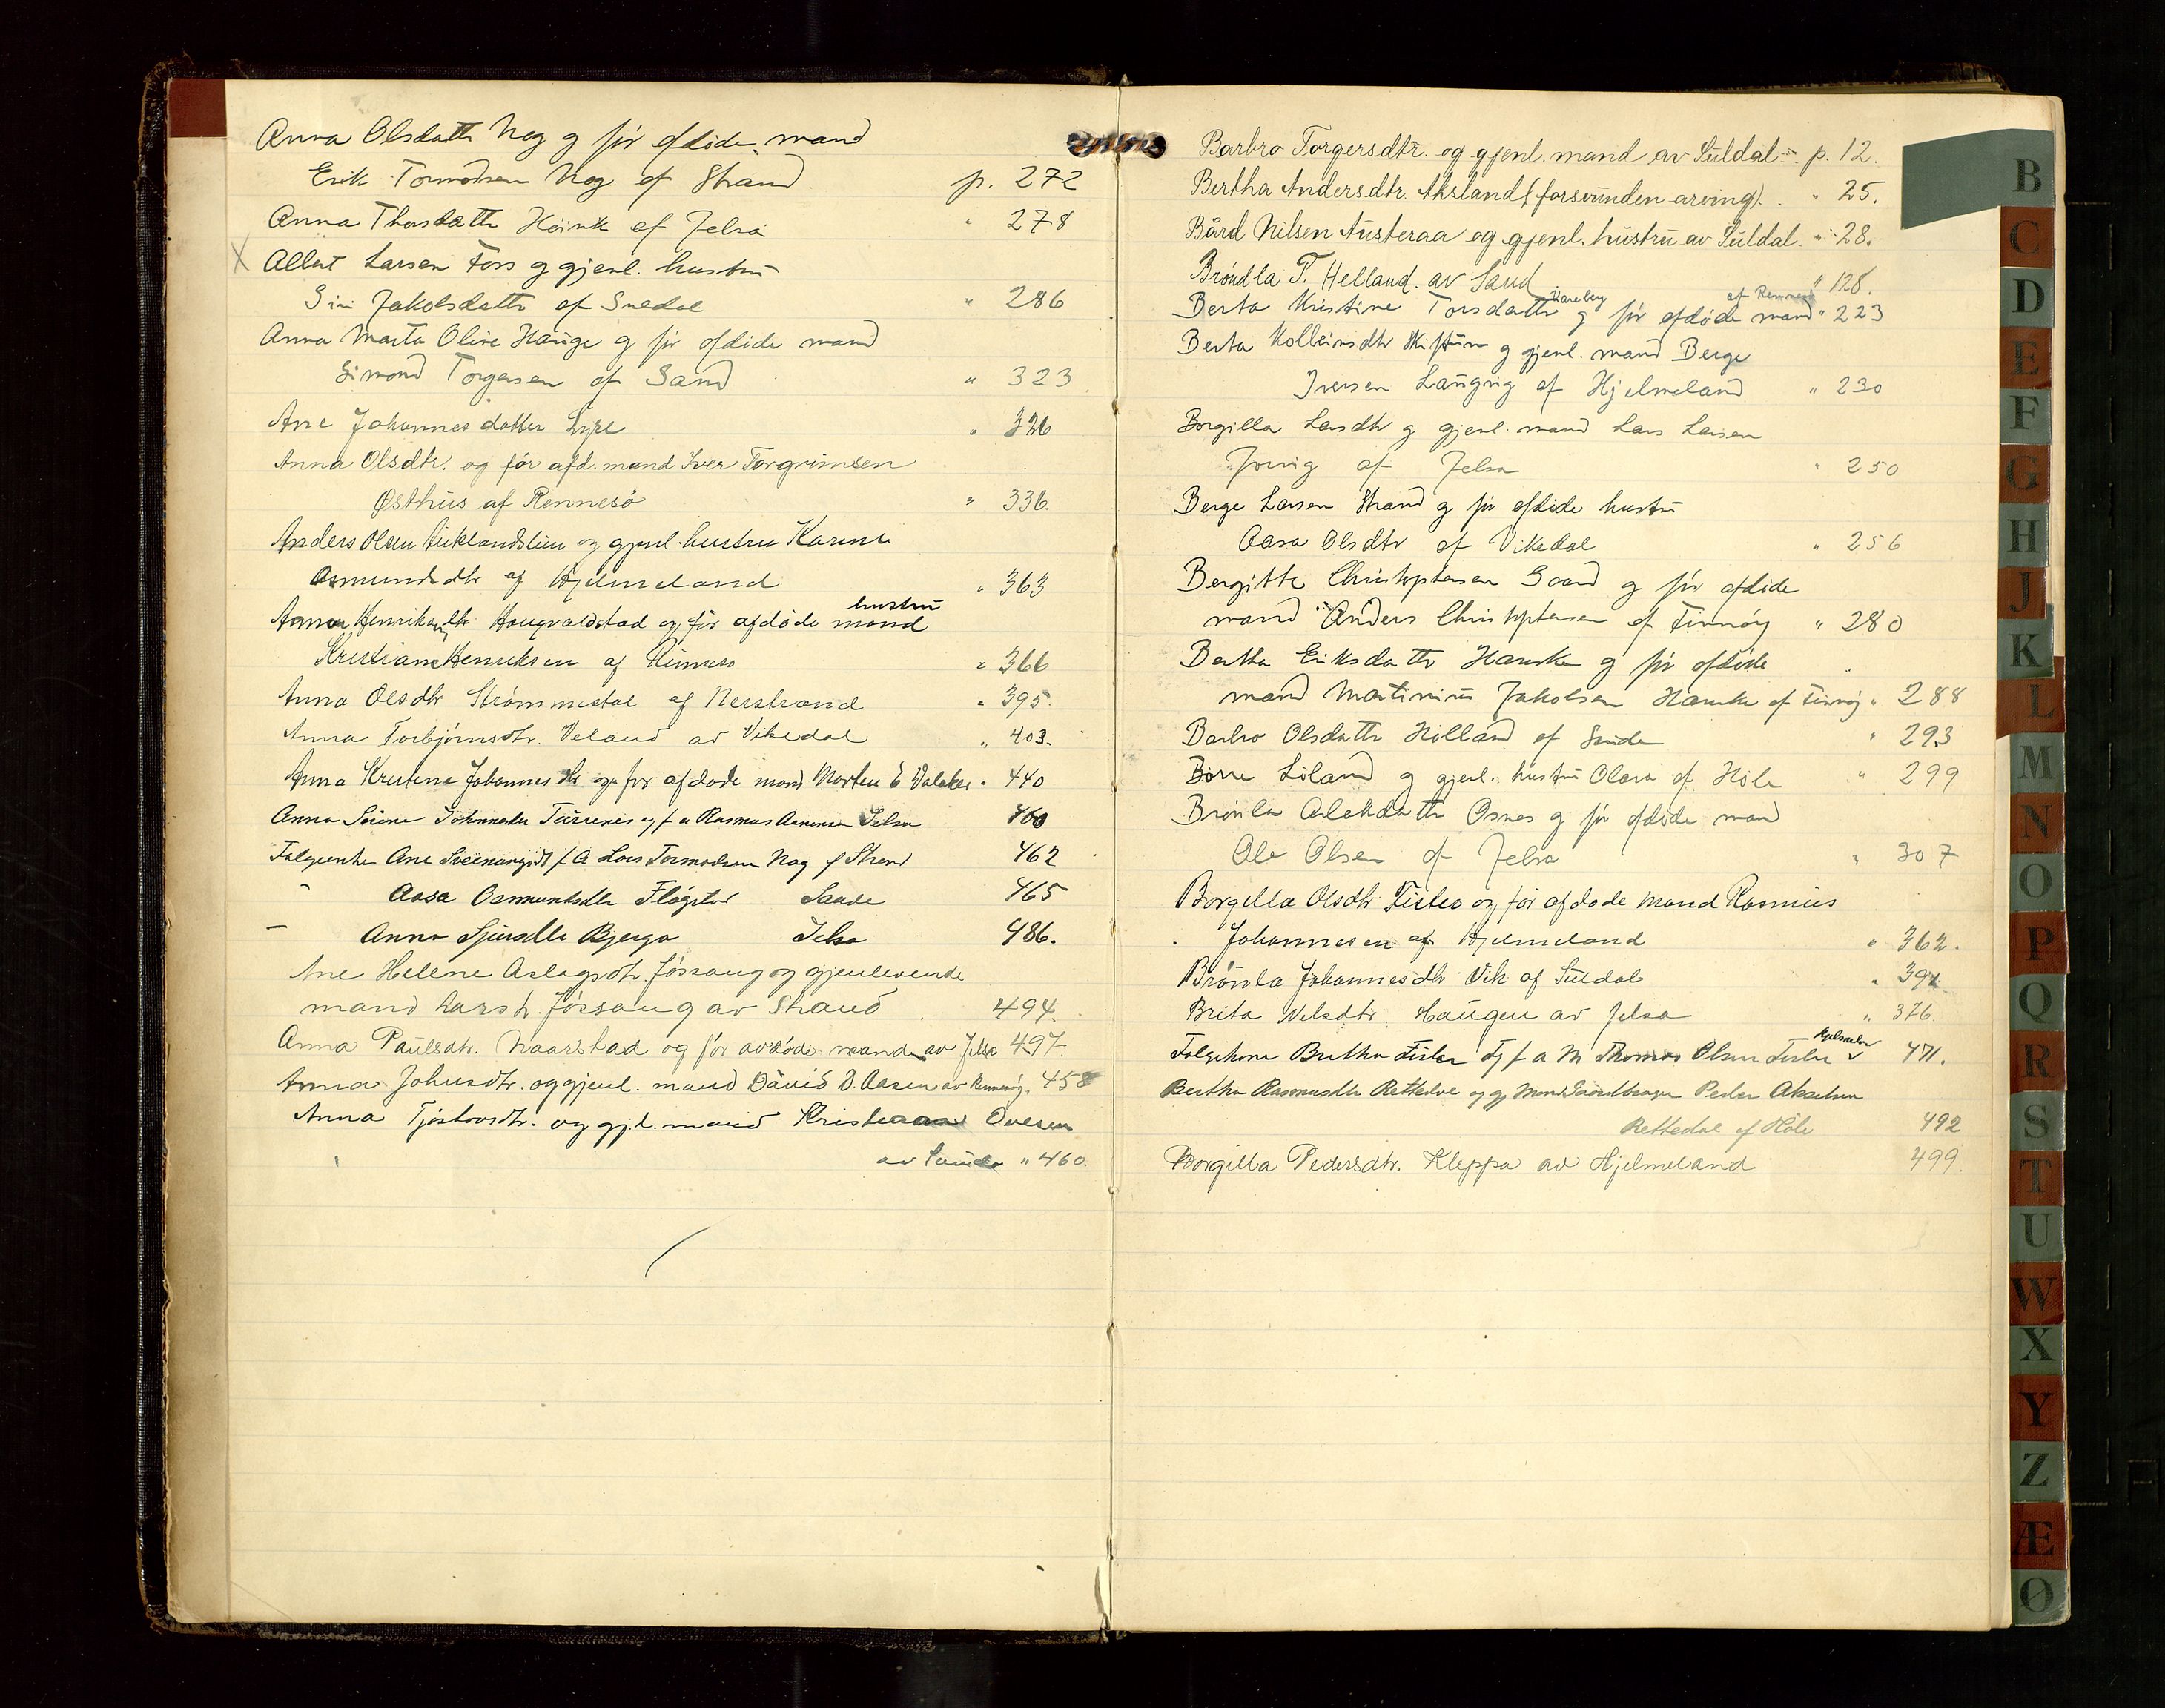 Anna Olsdattr Nag og før afdøde mand
Erik Tormodsen Nag af Strand p. 272
Anna Thorsdattr Høivik af Jelsa " 278
X Albert Larsen Foss og gjenl. hustru
Siri Jakobsdattr af Suldal " 286
Anna Marta Oline Hauge og før afdøde mand
Simond Torgersen af Sand " 323
Ane Johannesdatter Lyse " 326
Anna Olsdtr. og før afd. mand Iver Torgrimsen
Østhus af Rennesø " 336.
Anders Olsen Auklandslien og gjenl. hustru Karine
Osmundsdtr af Hjelmeland " 363
Henriksdtr Haugvaldstad og før afdøde mand hustru
Kristiane Henriksen af " 366
Anna Olsdtr Strømmestøl af Nerstrand " 395.
Anna Torbjørnsdtr. Veland av Vikedal " 403.
Anna Kristine Johannesdtr og før afdøde mand Morten E Valaker " 440
Anna Johannesdtr og f. a Rasmus Jelsa 460
Følgeenke Ane f. A Lars Tormodsen Nag af Strand 462
" Aasa Osmundsdtr Fløgstad Saude 465
" Anna Sjursdtr Bjerga Jelsa 486.
Ane Helene Aslagsdtr. Jøssang og gjenlevende
mand Lars L. Jøssang av Strand 494.
Anna Paulsdtr. Naarstad og før avdøde mand av Jelsa 497.
Anna Johnsdtr. og gjenl. mand David D. Aasen av Rennesøy. 458
Anna Tjøstovsdtr. og gjl. mand Ovesen
av Sauda " 460.
Barbro Torgersdtr. og gjenl. mand av Suldal p. 12.
Bertha Andersdtr. Aksland (forsvunden arving) . " 25.
Bård Nilsen Austeraa og gjenl. hustru av Suldal. " 28.
Brøndla T. Helland. av Sand " 128.
Berta Kristine Torsdattr Vareberg og før afdøde mand af Rennesø " 223
Berta Kolbeinsdtr og gjenl. mand Berge
Iversen Langvig af Hjelmeland " 230
Borgilla Larsdtr og gjenl. mand Lars Larsen
Jorvig af Jelsa " 250
Berge Larsen Strand og før afdøde hustru
Aasa Olsdtr af Vikedal " 256
Bergitte Christophersen Saand og før afdøde
mand Anders Christophersen af Finnøy " 280
Bertha Eriksdattr Hauske og før afdøde
mand Martinius Jakobsen Hauske af Finnøy " 288
Barbro Olsdattr Hølland af Saude " 293
Børre Liland og gjenl. hustru Olava af Høle " 299
Brønla Aslakdattr Osnes og før afdøde mand
Ole Olsen af Jelsa " 307
Borgilla Olsdtr Fister og før afdøde mand Rasmus
Johannesen af Hjelmeland " 362.
Brønla Johannesdtr Vik af Suldal " 391
Brita Nelsdtr. Haugen av Jelsa " 376.
Følgekone Bertha Fister og f a M Thomas Olsen Fister Hjelmeland 471.
Bertha Rasmusdtr Rettedal og gj. Mand Gaardbruger Peder Akselsen
Rettedal af Høle 492
Borgilla Pedersdtr. Kleppa av Hjelmeland 499.
B
C
D
E
F
G
H
J
K
L
M
N
O
P
Q
R
S
T
U
W
X
Y
Z
Æ
Ø